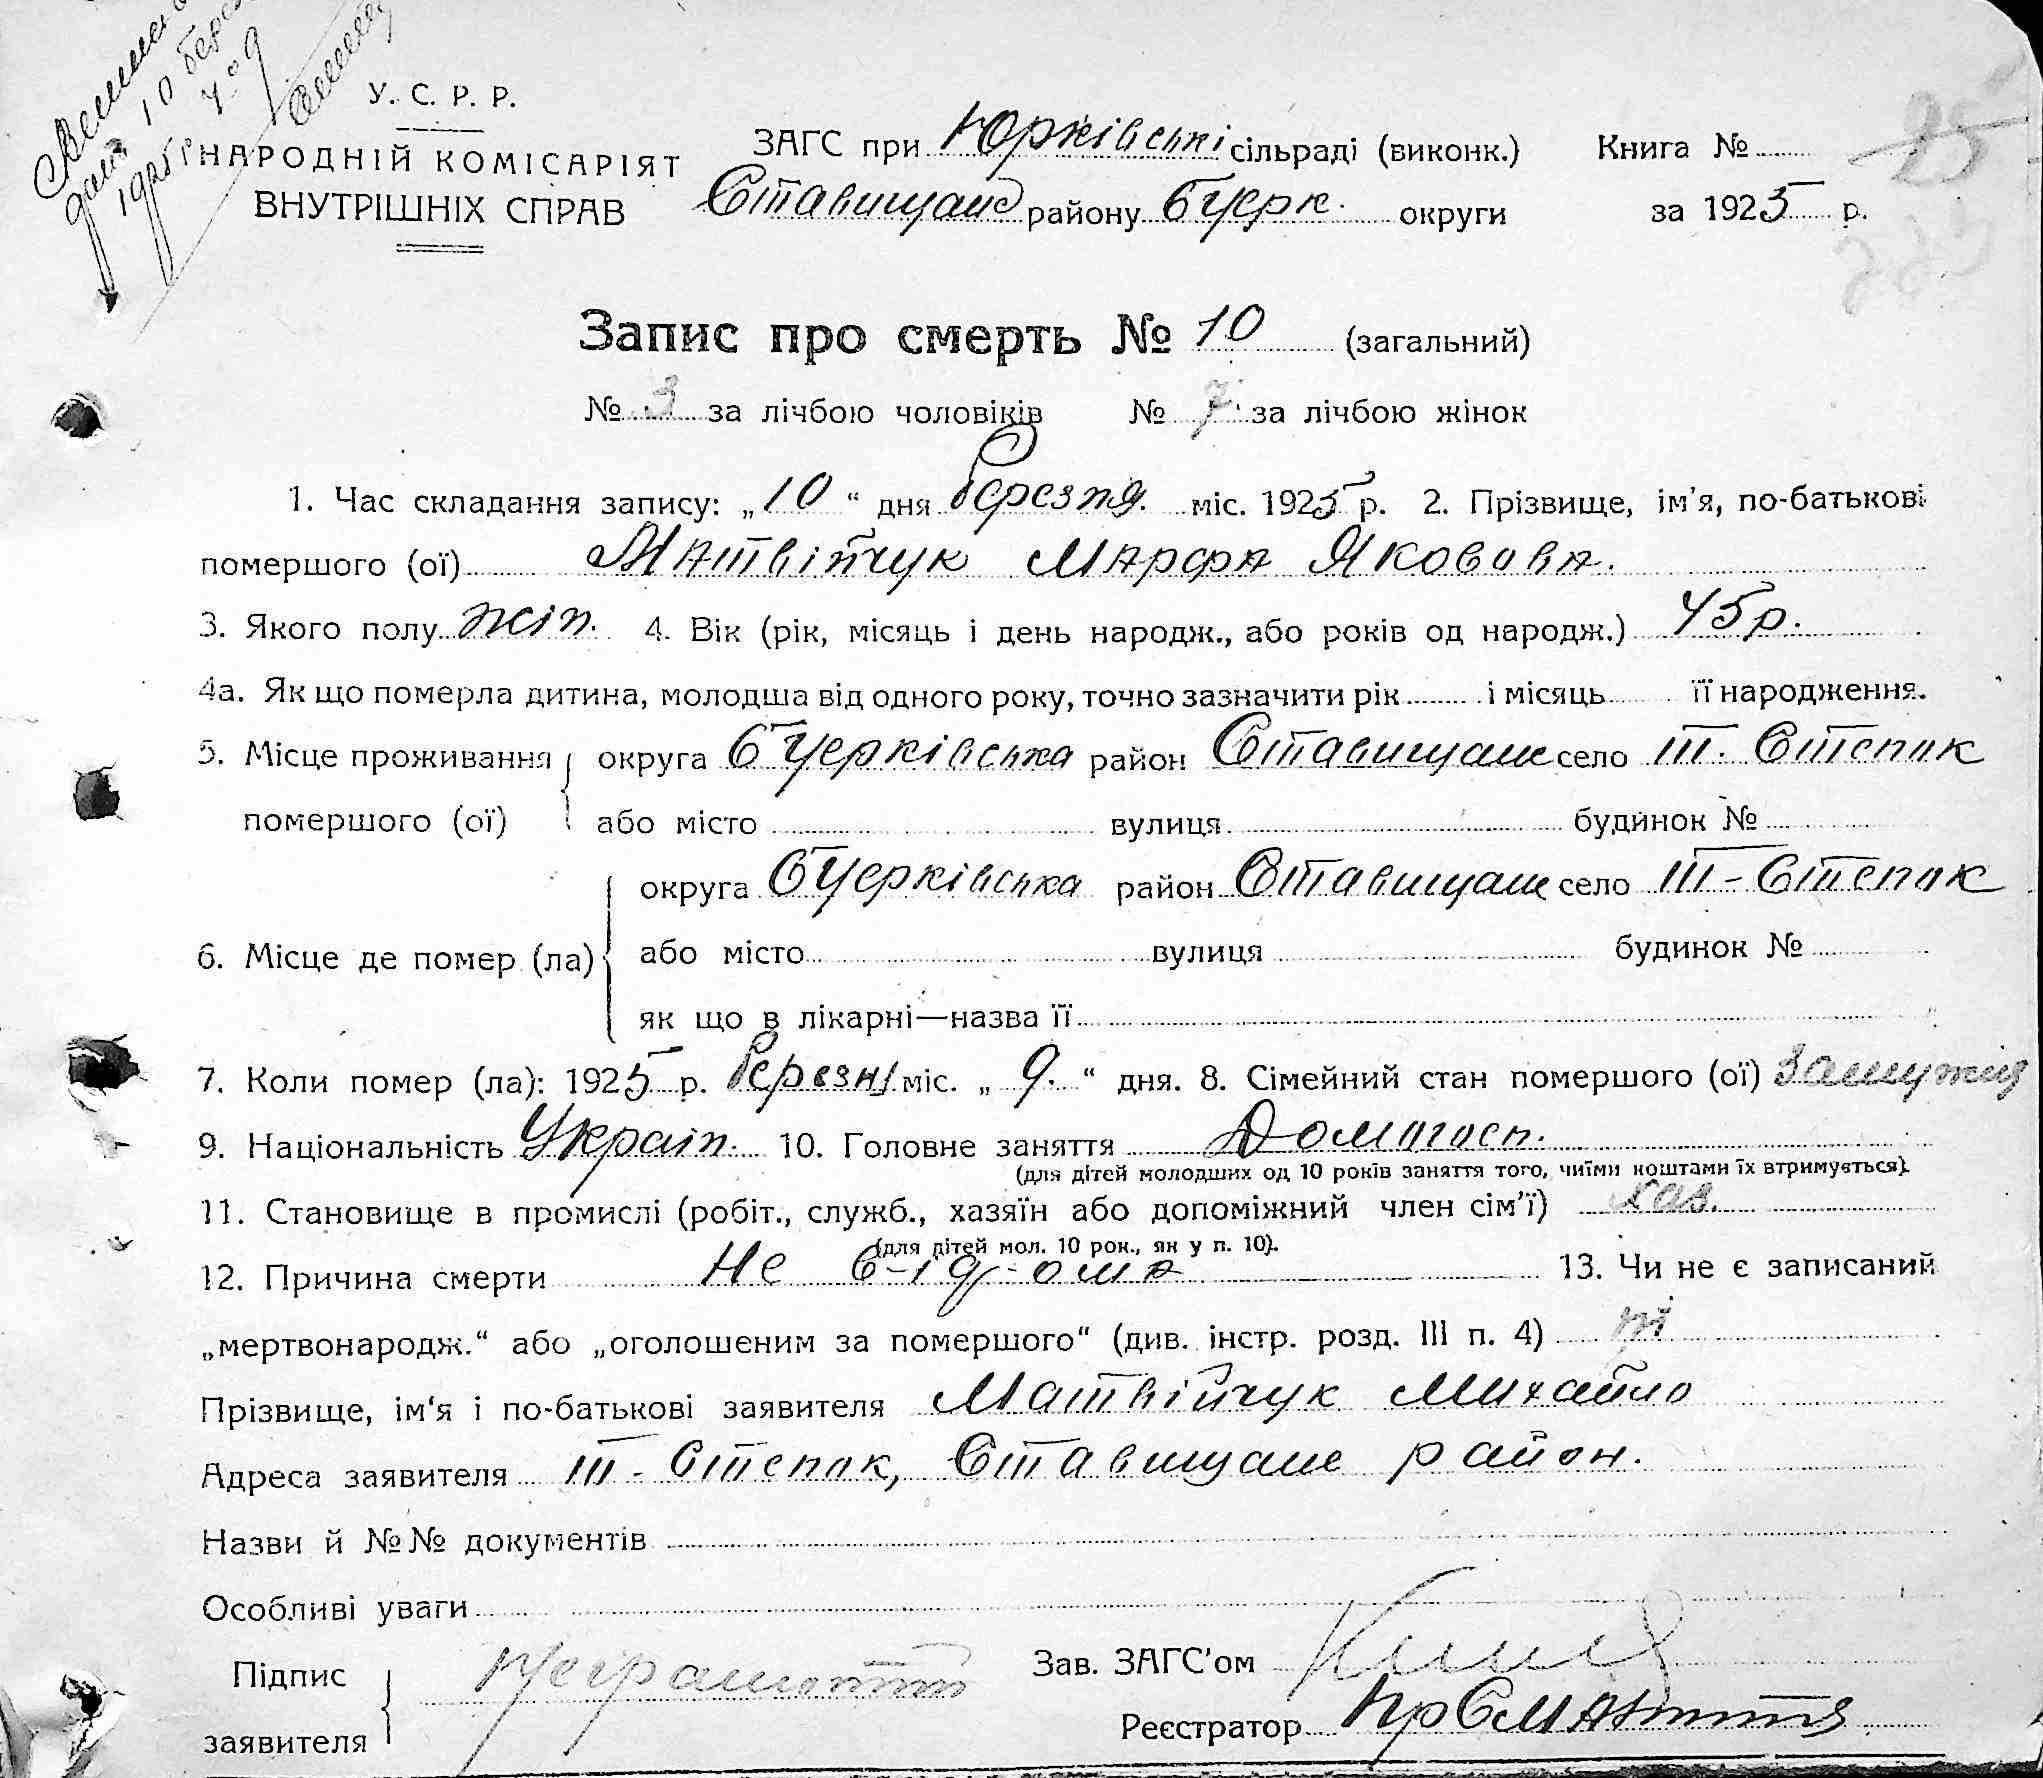 У. С. Р. Р.
НАРОДНІЙ КОМІСАРІЯТ
ВНУТРІШНІХ СПРАВ
10
1925 р
ЗАГС при Юрківські сільраді (виконк.) Книга №
Ставищан району БЦерк. округи за 1925 р.
Запис про смерть № 10 (загальний)
№ 3 за лічбою чоловіків № 7 за лічбою жінок
1. Час складання запису: „10“ дня березня міс. 1925 р. 2. Прізвище, ім'я, по-батькові
помершого (ої) Матвійчук Марфа Яковова.
3. Якого полу жін. 4. Вік (рік, місяць і день народж., або років од народж.) 45 р.
4а. Як що померла дитина, молодша від одного року, точно зазначити рік і місяць її народження.
5. Місце проживання округа БЦерківська район Ставищан село ІІІ. Степок
помершого (ої) або місто вулиця будинок №
округа БЦерківська район Ставищан село ІІІ - Степок
6. Місце де помер (ла) або місто вулиця будинок №
як що в лікарні—назва її
7. Коли помер (ла): 1925 р. березня міс. „9.“ дня. 8. Сімейний стан помершого (ої) Замужня
9. Національність Україн. 10. Головне заняття Домогосп.
(для дітей молодших од 10 років заняття того, чиїми коштами їх втримується).
11. Становище в промислі (робіт., служб., хазяїн або допоміжний член сім'ї) хаз.
(для дітей мол. 10 рок., як у п. 10).
12. Причина смерти Не відома 13. Чи не є записаний
„мертвонародж.“ або „оголошеним за помершого“ (див. інстр. розд. III п. 4) ні
Прізвище, ім'я і по-батькові заявителя Матвійчук Михайло
Адреса заявителя ІІІ - Степок, Ставищан район.
Назви й №№ документів
Особливі уваги
Підпис
заявителя
Зав. ЗАГС'ом
Реєстратор